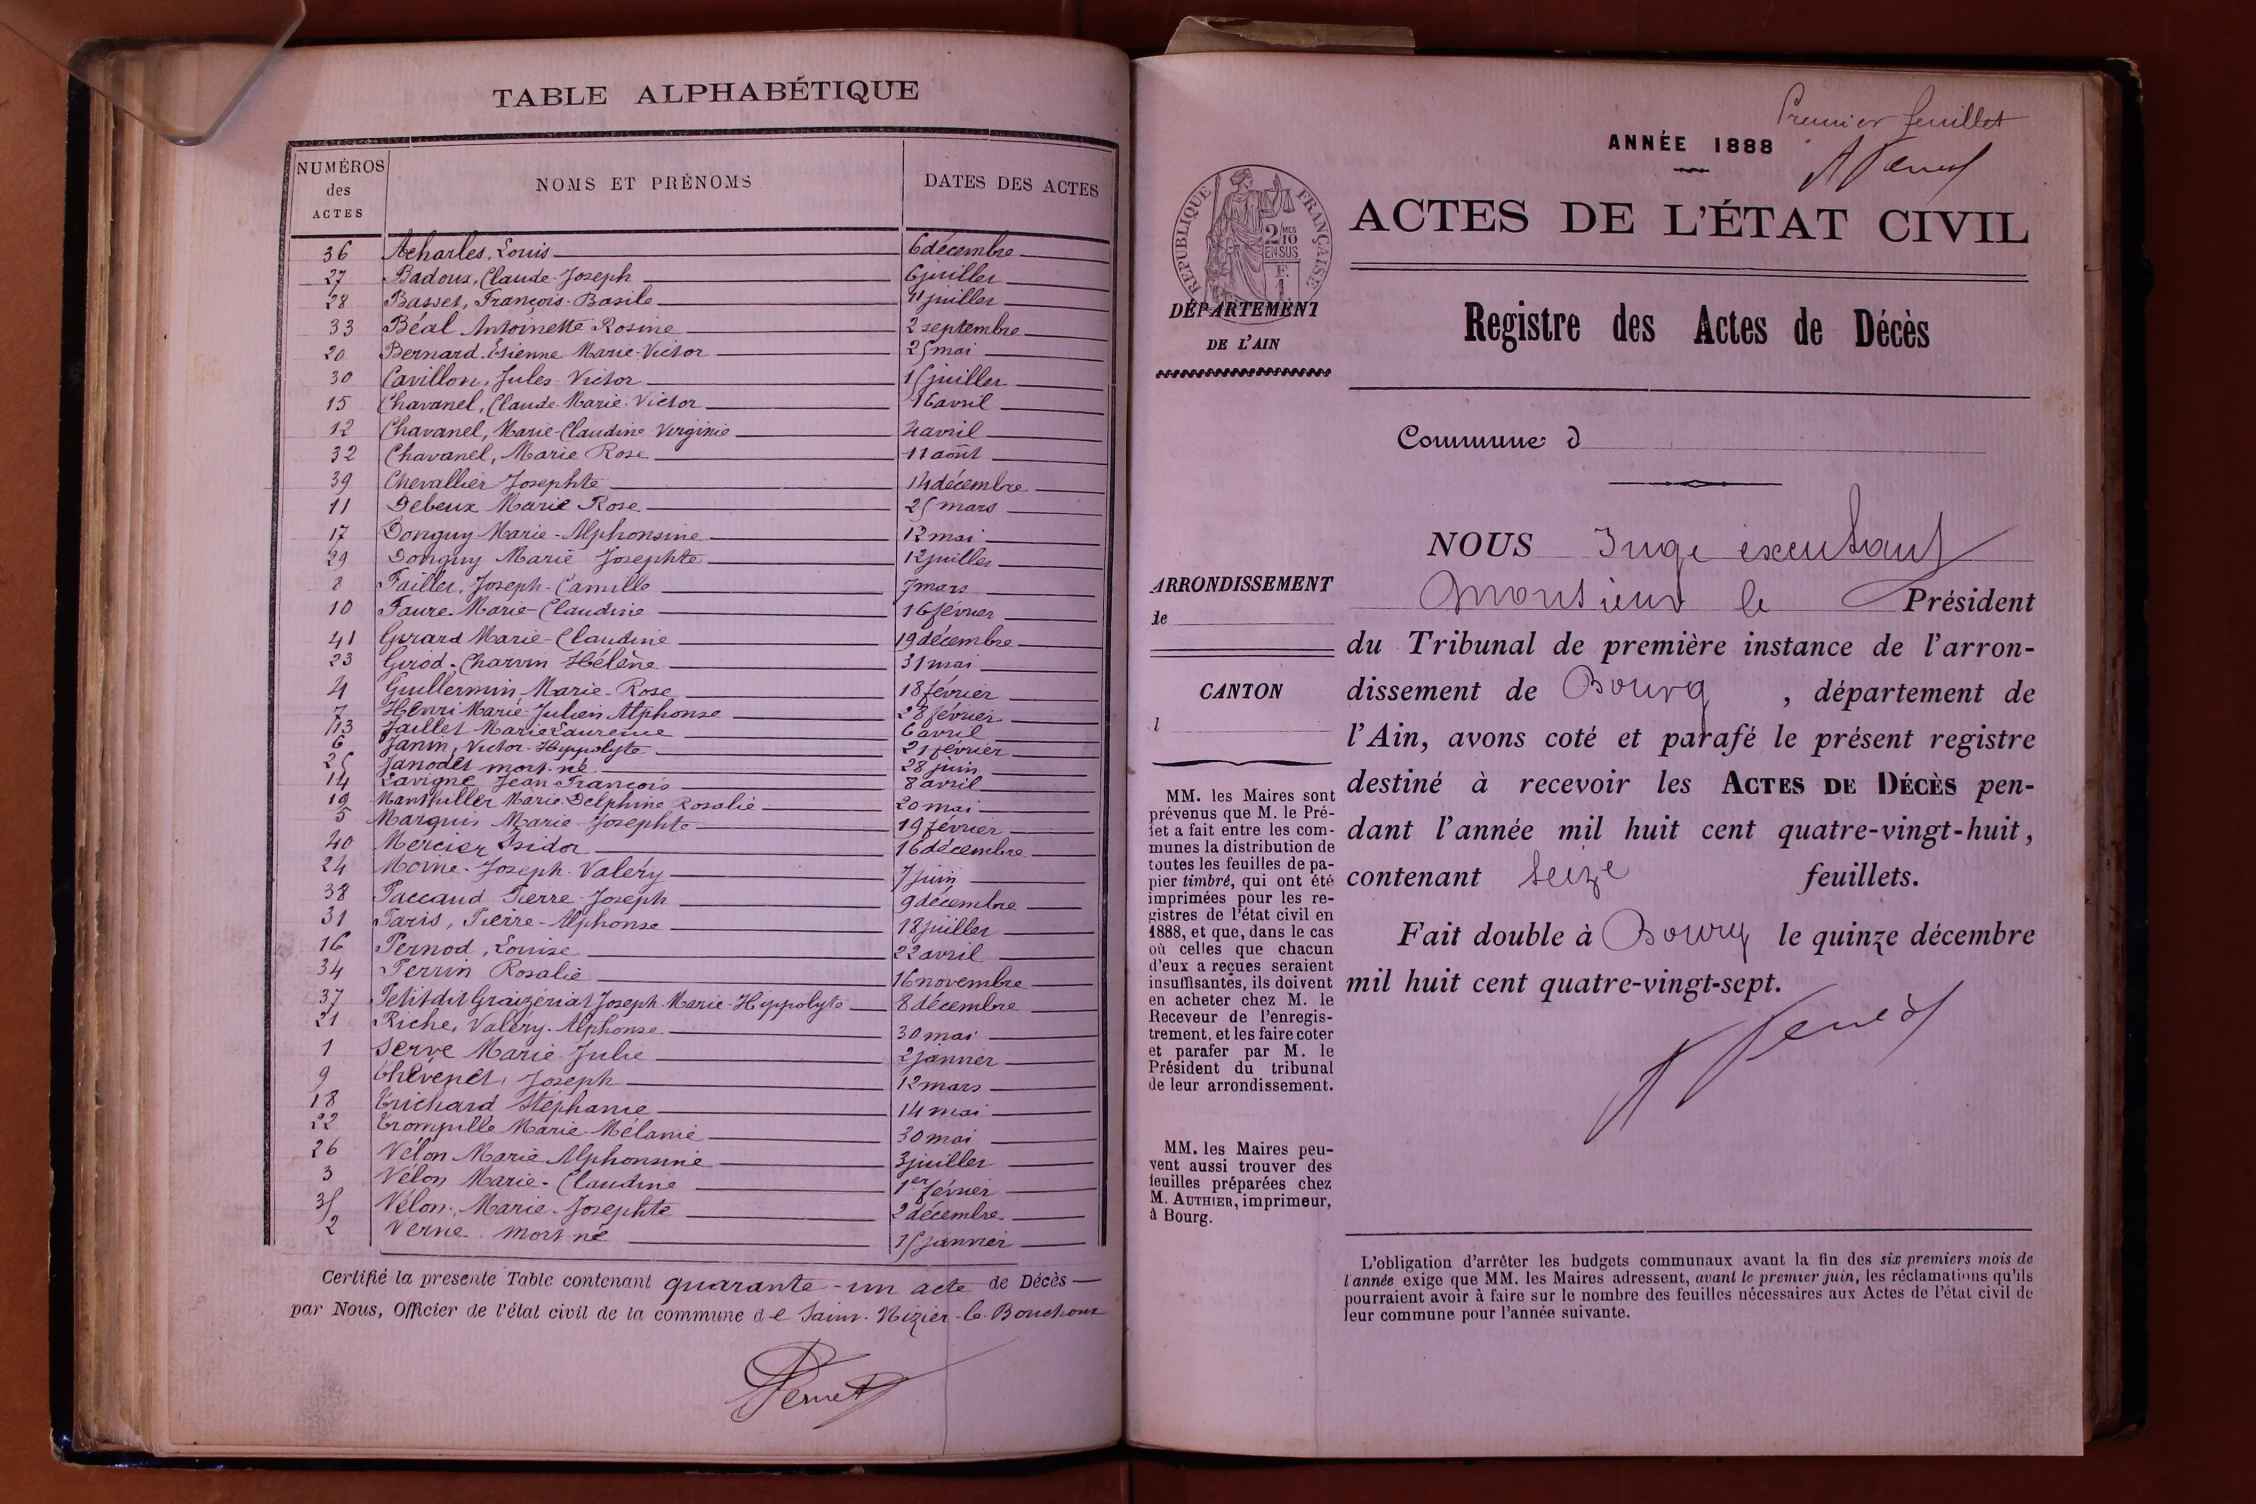 TABLE ALPHABÉTIQUE
NUMÉROS des ACTES NOMS ET PRÉNOMS DATES DES ACTES
36 Acharles, Louis 6 décembre
27 Badoux, Claude-Joseph 6 juillet
28 Basset, François-Basile 11 juillet
33 Béal Antoinette Rosine 2 septembre
20 Bernard Etienne Marie-Victor 25 mai
30 Cavillon, Jules Victor 15 juillet
15 Chavanel, Claude Marie Victor 16 avril
12 Chavanel, Marie-Claudine Virginie 4 avril
32 Chavanel, Marie Rose 11 août
39 Chevallier Josephte 14 décembre
11 Debeux Marie Rose 25 mars
17 Donguy Marie-Alphonsine 12 mai
29 Donguy Marie Josephte 12 juillet
8 Faillet, Joseph-Camille 7 mars
10 Faure Marie-Claudine 16 février
41 Girard Marie-Claudine 19 décembre
23 Girod-Charvin Hélène 31 mai
4 Guillermin Marie-Rose 18 février
7 Henri Marie-Julien Alphonse 28 février
13 Jaillet Marie Laurence 6 avril
6 Janin, Victor-Hippolyte 21 février
25 Janodet mort-né 28 juin
14 Lavigne Jean François 8 avril
19 Marie-Delphine Rosalie 20 mai
5 Marguin Marie Josephte 19 février
40 Mercier Isidor 16 décembre
24 Moine-Joseph-Valéry 7 juin
38 Paccaud Pierre-Joseph 9 décembre
31 Paris, Pierre-Alphonse 18 juillet
16 Pernod, Louise 22 avril
34 Perrin Rosalie 16 novembre
37 Petit dit Graizériat Joseph-Marie-Hippolyte 8 décembre
21 Riche, Valéry-Alphonse 30 mai
1 Serve Marie Julie 2 janvier
9 Thévenet, Joseph 12 mars
18 Trichard Stéphanie 14 mai
22 Trompille Marie-Mélanie 30 mai
26 Vélon Marie Alphonsine 3 juillet
3 Vélon Marie-Claudine 1er février
35 Vélon, Marie-Josephte 2 décembre
2 Verne mort né 15 janvier
Certifié la présente Table contenant quarante-un acte de Décès
par Nous, Officier de l'état civil de la commune de Saint-Nizier-le-Bouchoux
Pernet
Premier feuillet
ANNÉE 1888
ACTES DE L'ÉTAT CIVIL
RÉPUBLIQUE FRANÇAISE
2 MES 10 EN SUS
DÉPARTEMENT
DE L'AIN
Registre des Actes de Décès
Commune d
ARRONDISSEMENT
de
CANTON
l
MM. les Maires sont
prévenus que M. le Pré-
fet a fait entre les com-
munes la distribution de
toutes les feuilles de pa-
pier timbré, qui ont été
imprimées pour les re-
gistres de l'état civil en
1888, et que, dans le cas
où celles que chacun
d'eux a reçues seraient
insuffisantes, ils doivent
en acheter chez M. le
Receveur de l'enregis-
trement, et les faire coter
et parafer par M. le
Président du tribunal
de leur arrondissement.
MM. les Maires peu-
vent aussi trouver des
feuilles préparées chez
M. AUTHIER, imprimeur,
à Bourg.
NOUS Juge exécutant
Monsieur le Président
du Tribunal de première instance de l'arron-
dissement de Bourg, département de
l'Ain, avons coté et parafé le présent registre
destiné à recevoir les ACTES DE DÉCÈS pen-
dant l'année mil huit cent quatre-vingt-huit,
contenant seize feuillets.
Fait double à Bourg le quinze décembre
mil huit cent quatre-vingt-sept.
L'obligation d'arrêter les budgets communaux avant la fin des six premiers mois de
l'année exige que MM. les Maires adressent, avant le premier juin, les réclamations qu'ils
pourraient avoir à faire sur le nombre des feuilles nécessaires aux Actes de l'état civil de
leur commune pour l'année suivante.